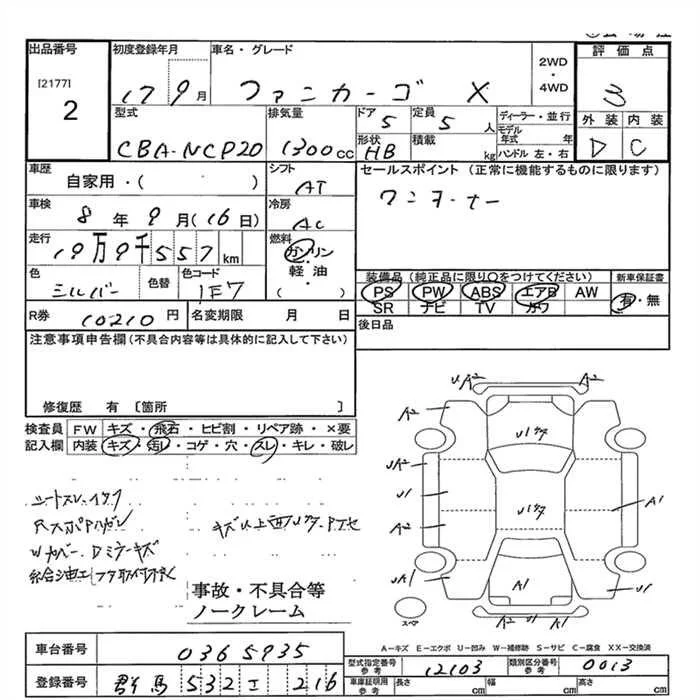 出品番号 初度登録年月 車名・グレード 評価点
[2177]
2
17 9月 ファンカーゴ X 2WD・4WD 3
型式 排気量 ドア 定員 ディーラー・並行 外装 内装
CBA-NCP20 1300cc 5 5人 モデル年式 年 D C
形状 積載 ハンドル 左・右
HB kg
車歴 シフト セールスポイント (正常に機能するものに限ります)
自家用・( ) AT ワンオーナー
車検 冷房
8年9月(16日) AC
走行 燃料
19万9千557km ガソリン・軽油・( )
色 色替 色コード 装備品(純正品に限り○をつけてください) 新車保証書
シルバー 1E7 PS PW ABS エアB AW 有・無
SR ナビ TV カワ
R券 10210円 名変期限 月 日 後日品
注意事項申告欄(不具合内容等は具体的に記入して下さい)
修復歴 有 [箇所 ]
検査員 FW キズ・飛石・ヒビ割・リペア跡・×要
記入欄 内装 キズ・汚レ・コゲ・穴・スレ・キレ・破レ
UA2 A2
A2 A2
UA2
U1
A2
UA1
A1
A1
U1
UA2 UA2
スペア
事故・不具合等
ノークレーム
A−キズ E−エクボ U−凹み W−補修跡 S−サビ C−腐食 XX−交換済
車台番号 0365935
型式指定番号 参考 12103 類別区分番号 参考 0013
登録番号 群馬 532 エ 216
車庫証明用 参考 長さ cm 幅 cm 高さ cm